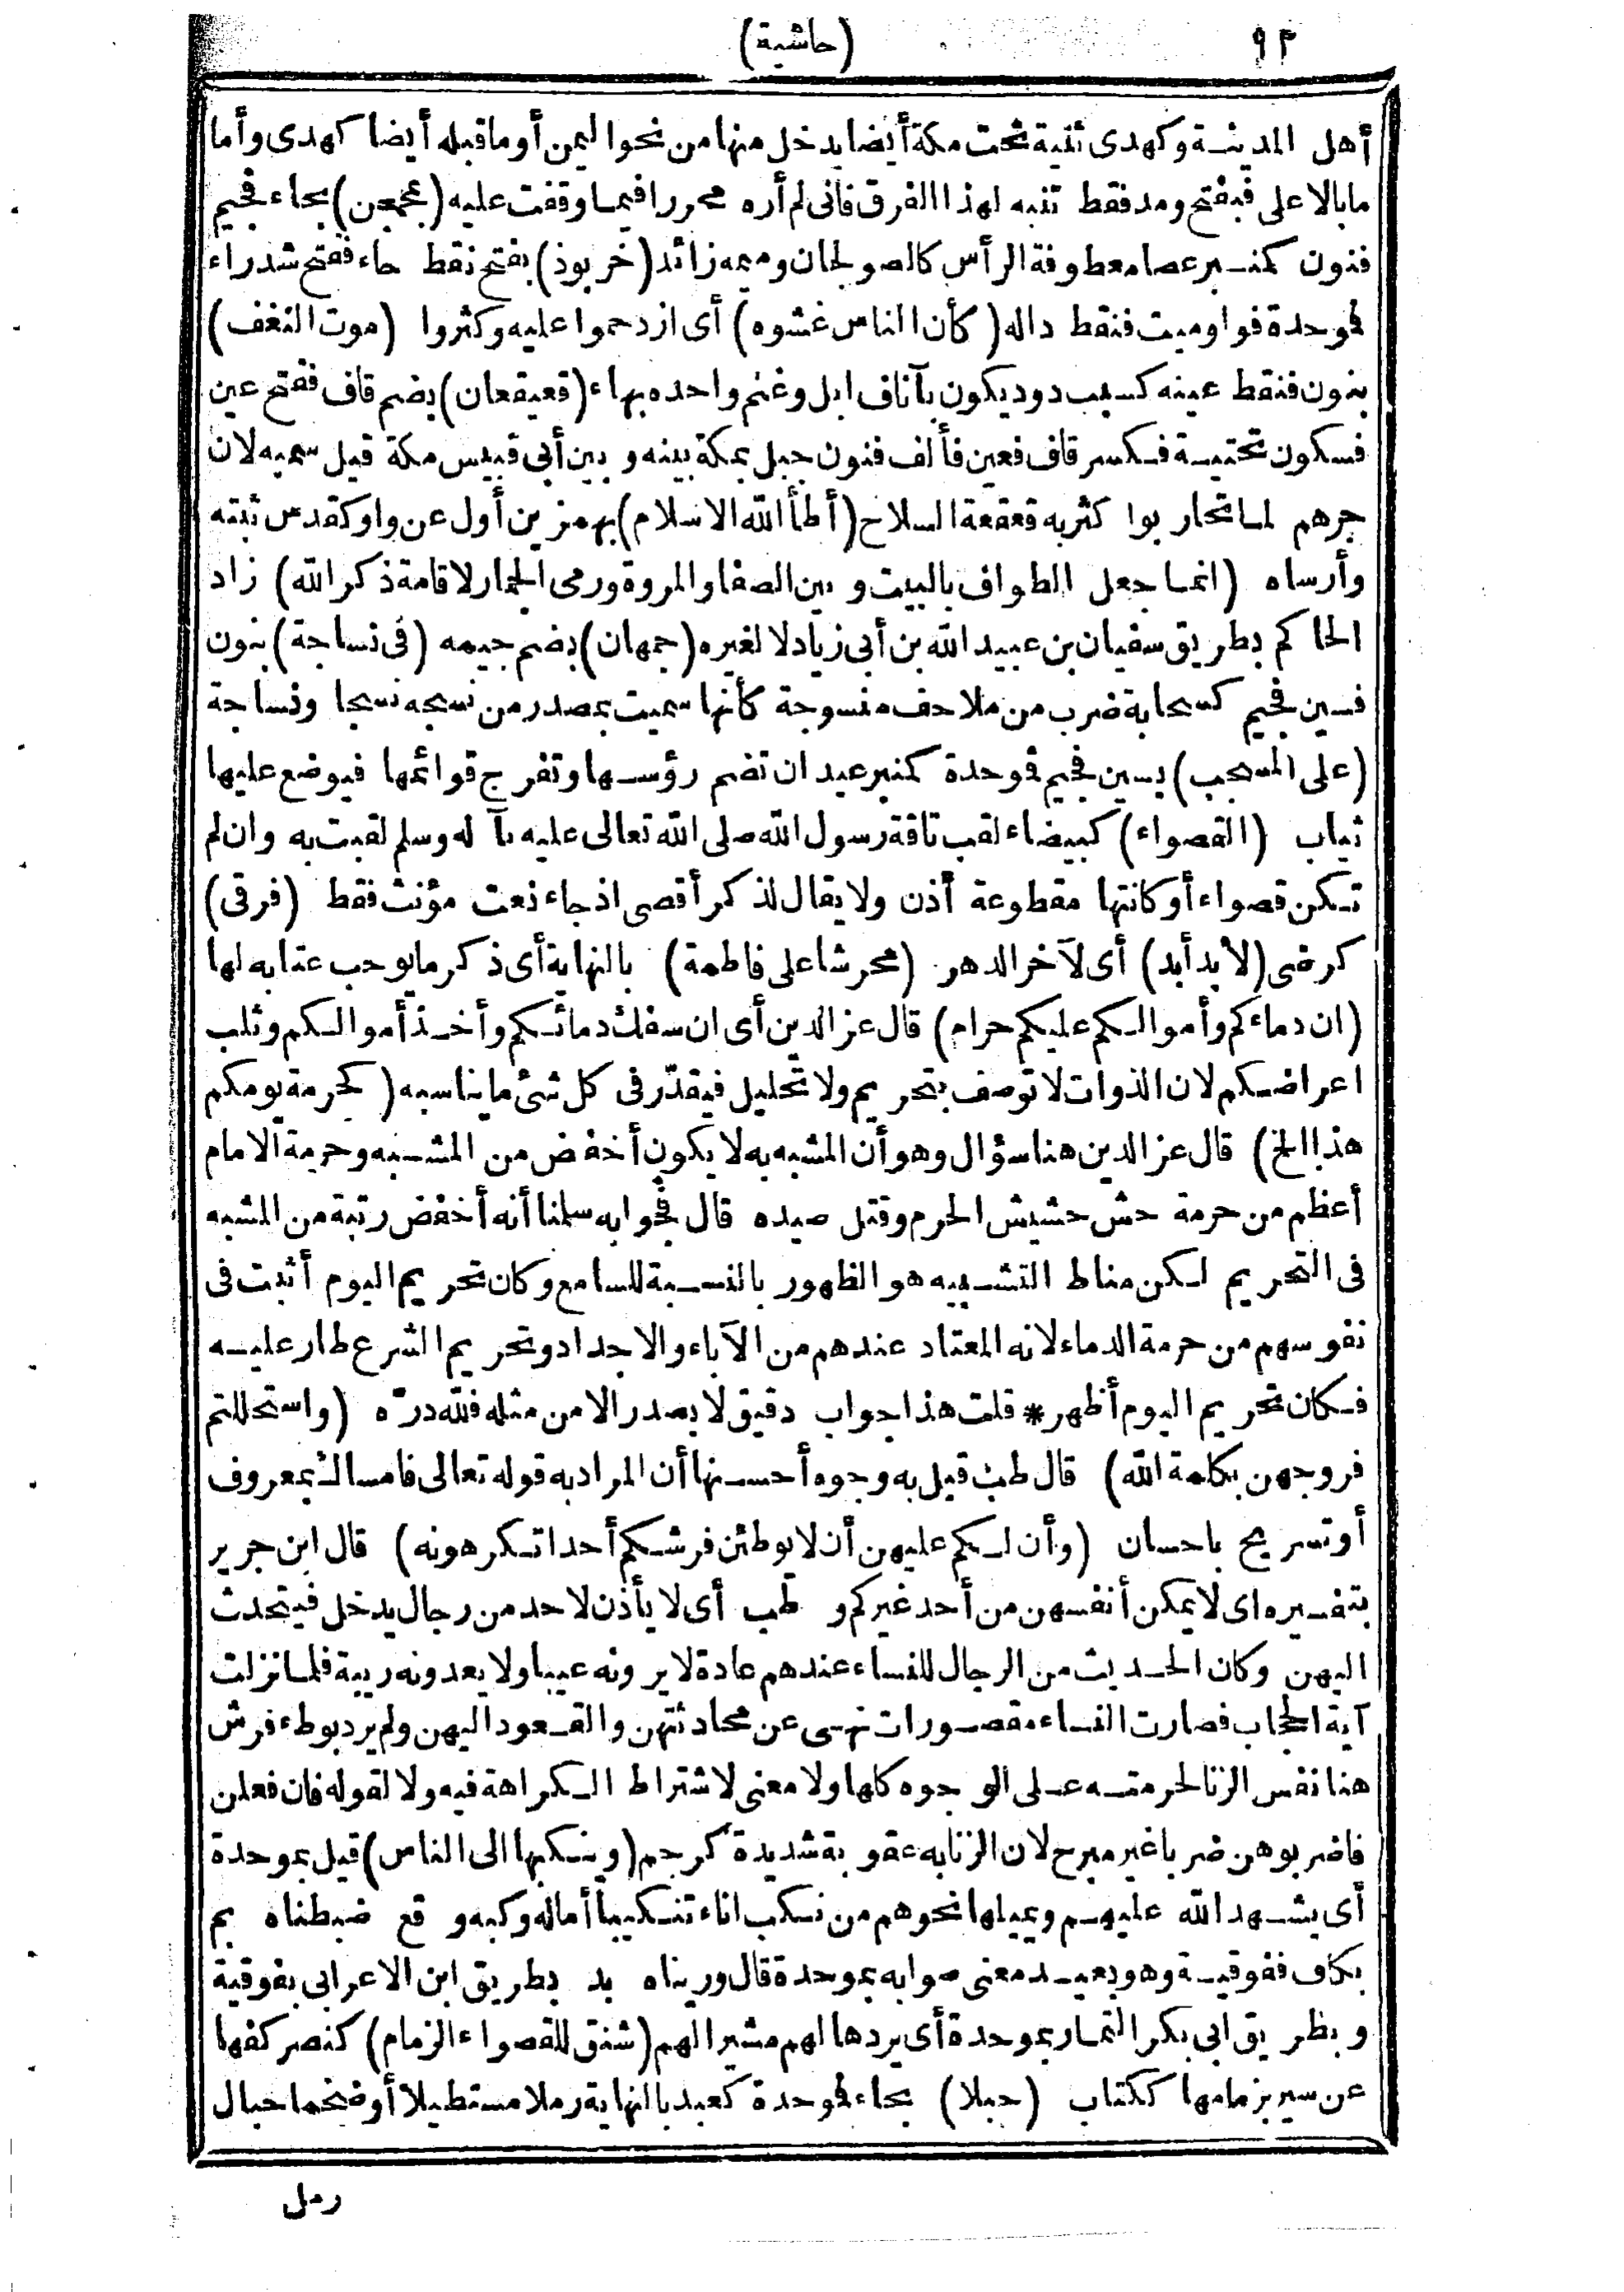 ٩٣
(حاشية)
أهل المدينة وكهدى ثنية تحت مكة أيضا يدخل منها من نحو اليمن أو ما قبله أيضا كهدى وأما
ما بالاعلى فبفتح ومد فقط تنبه لهذا الفرق فانى لم أره محررا فيما وقفت عليه (بمحجن) بحاء فجيم
فنون كمنبر عصا معطوفة الرأس كالصولجان وميمه زائد (خربوذ) بفتح نقط خاء ففتح شد راء
فموحدة فواو ميت فنقط داله (كأن الناس غشوه) أى ازدحموا عليه وكثروا (موت النغف)
بنون فنقط عينه كسبب دود يكون بآناف ابل وغنم واحده بهاء (قعيقعان) بضم قاف ففتح عين
فسكون تحتية فكسر قاف فعين فألف فنون جبل بمكة بينه و بين أبى قبيس مكة قيل سمى به لان
جرهم لما تحاربوا كثر به قعقعة السلاح (أطأ الله الاسلام) بهمزين أول عن واو كقدس ثبته
وأرساه (انما جعل الطواف بالبيت و بين الصفا والمروة ورمى الجمار لاقامة ذكر الله) زاد
الحاكم بطريق سفيان بن عبيد الله بن أبى زياد لا لغيره (جمهان) بضم جيمه (فى نساجة) بنون
فسين فجيم كسحابة ضرب من ملاحف منسوجة كأنها سميت بمصدر من نسجه نسجا ونساجة
(على المسجب) بسين فجيم فموحدة كمنبر عيدان تضم رؤسها وتفرج قوائمها فيوضع عليها
ثياب (القصواء) كبيضاء لقب ناقة رسول الله صلى الله تعالى عليه بآله وسلم لقبت به وان لم
تكن قصواء أو كانتها مقطوعة أذن ولا يقال لذكر أقصى اذ جاء نعت مؤنث فقط (فرقى)
كرضى (لأبد أبد) أى لآخر الدهر (محرشا على فاطمة) بالنهاية أى ذكر ما يوجب عتابه لها
(ان دماءكم وأموالكم عليكم حرام) قال عز الدين أى ان سفك دمائكم وأخذ أموالكم وثلب
اعراضكم لان الذوات لا توصف بتحريم ولا تحليل فيقدّر فى كل شئ ما يناسبه (كحرمة يومكم
هذا الخ) قال عز الدين هنا سؤال وهو أن المشبه به لا يكون أخفض من المشبه وحرمة الامام
أعظم من حرمة حش حشيش الحرم وقتل صيده قال فجوابه سلمنا أنه أخفض رتبة من المشبه
فى التحريم لكن مناط التشبيه هو الظهور بالنسبة للسامع وكان تحريم اليوم أثبت فى
نفوسهم من حرمة الدماء لانه المعتاد عندهم من الآباء والاجداد وتحريم الشرع طار عليه
فكان تحريم اليوم أظهر * قلت هذا جواب دقيق لا يصدر الا من مثله فلله درّه (واستحللتم
فروجهن بكلمة الله) قال طب قيل به وجوه أحسنها أن المراد به قوله تعالى فامساك بمعروف
أو تسريح باحسان (وأن لكم عليهن أن لا يوطئن فرشكم أحدا تكرهونه) قال ابن جرير
بتفسيره اى لا يمكن أنفسهن من أحد غيركم و طب أى لا يأذن لاحد من رجال يدخل فيتحدث
اليهن وكان الحديث من الرجال للنساء عندهم عادة لا يرونه عيبا ولا يعدونه ريبة فلما نزلت
آية الحجاب فصارت النساء مقصورات نهى عن محادثتهن والقعود اليهن ولم يرد بوطء فرش
هنا نفس الزنا لحرمته على الوجوه كلها ولا معنى لاشتراط الكراهة فيه ولا لقوله فان فعلن
فاضربوهن ضربا غير مبرح لان الزنا به عقوبة شديدة كرجم (وينكبها الى الناس) قيل بموحدة
أى يشهد الله عليهم ويميلها نحوهم من نكب اناء تنكيبا أماله وكبه و قع ضبطناه بم
بكاف ففوقية وهو بعيد معنى صوابه بموحدة قال ورويناه بد بطريق ابن الاعرابى بفوقية
و بطريق ابى بكر التمار بموحدة أى يردها لهم مشيرا لهم (شنق للقصواء الزمام) كنصر كفها
عن سير بزمامها ككتاب (حبلا) بحاء فموحدة كعبد بالنهاية رملا مستطيلا أو ضخما حبال
رمل